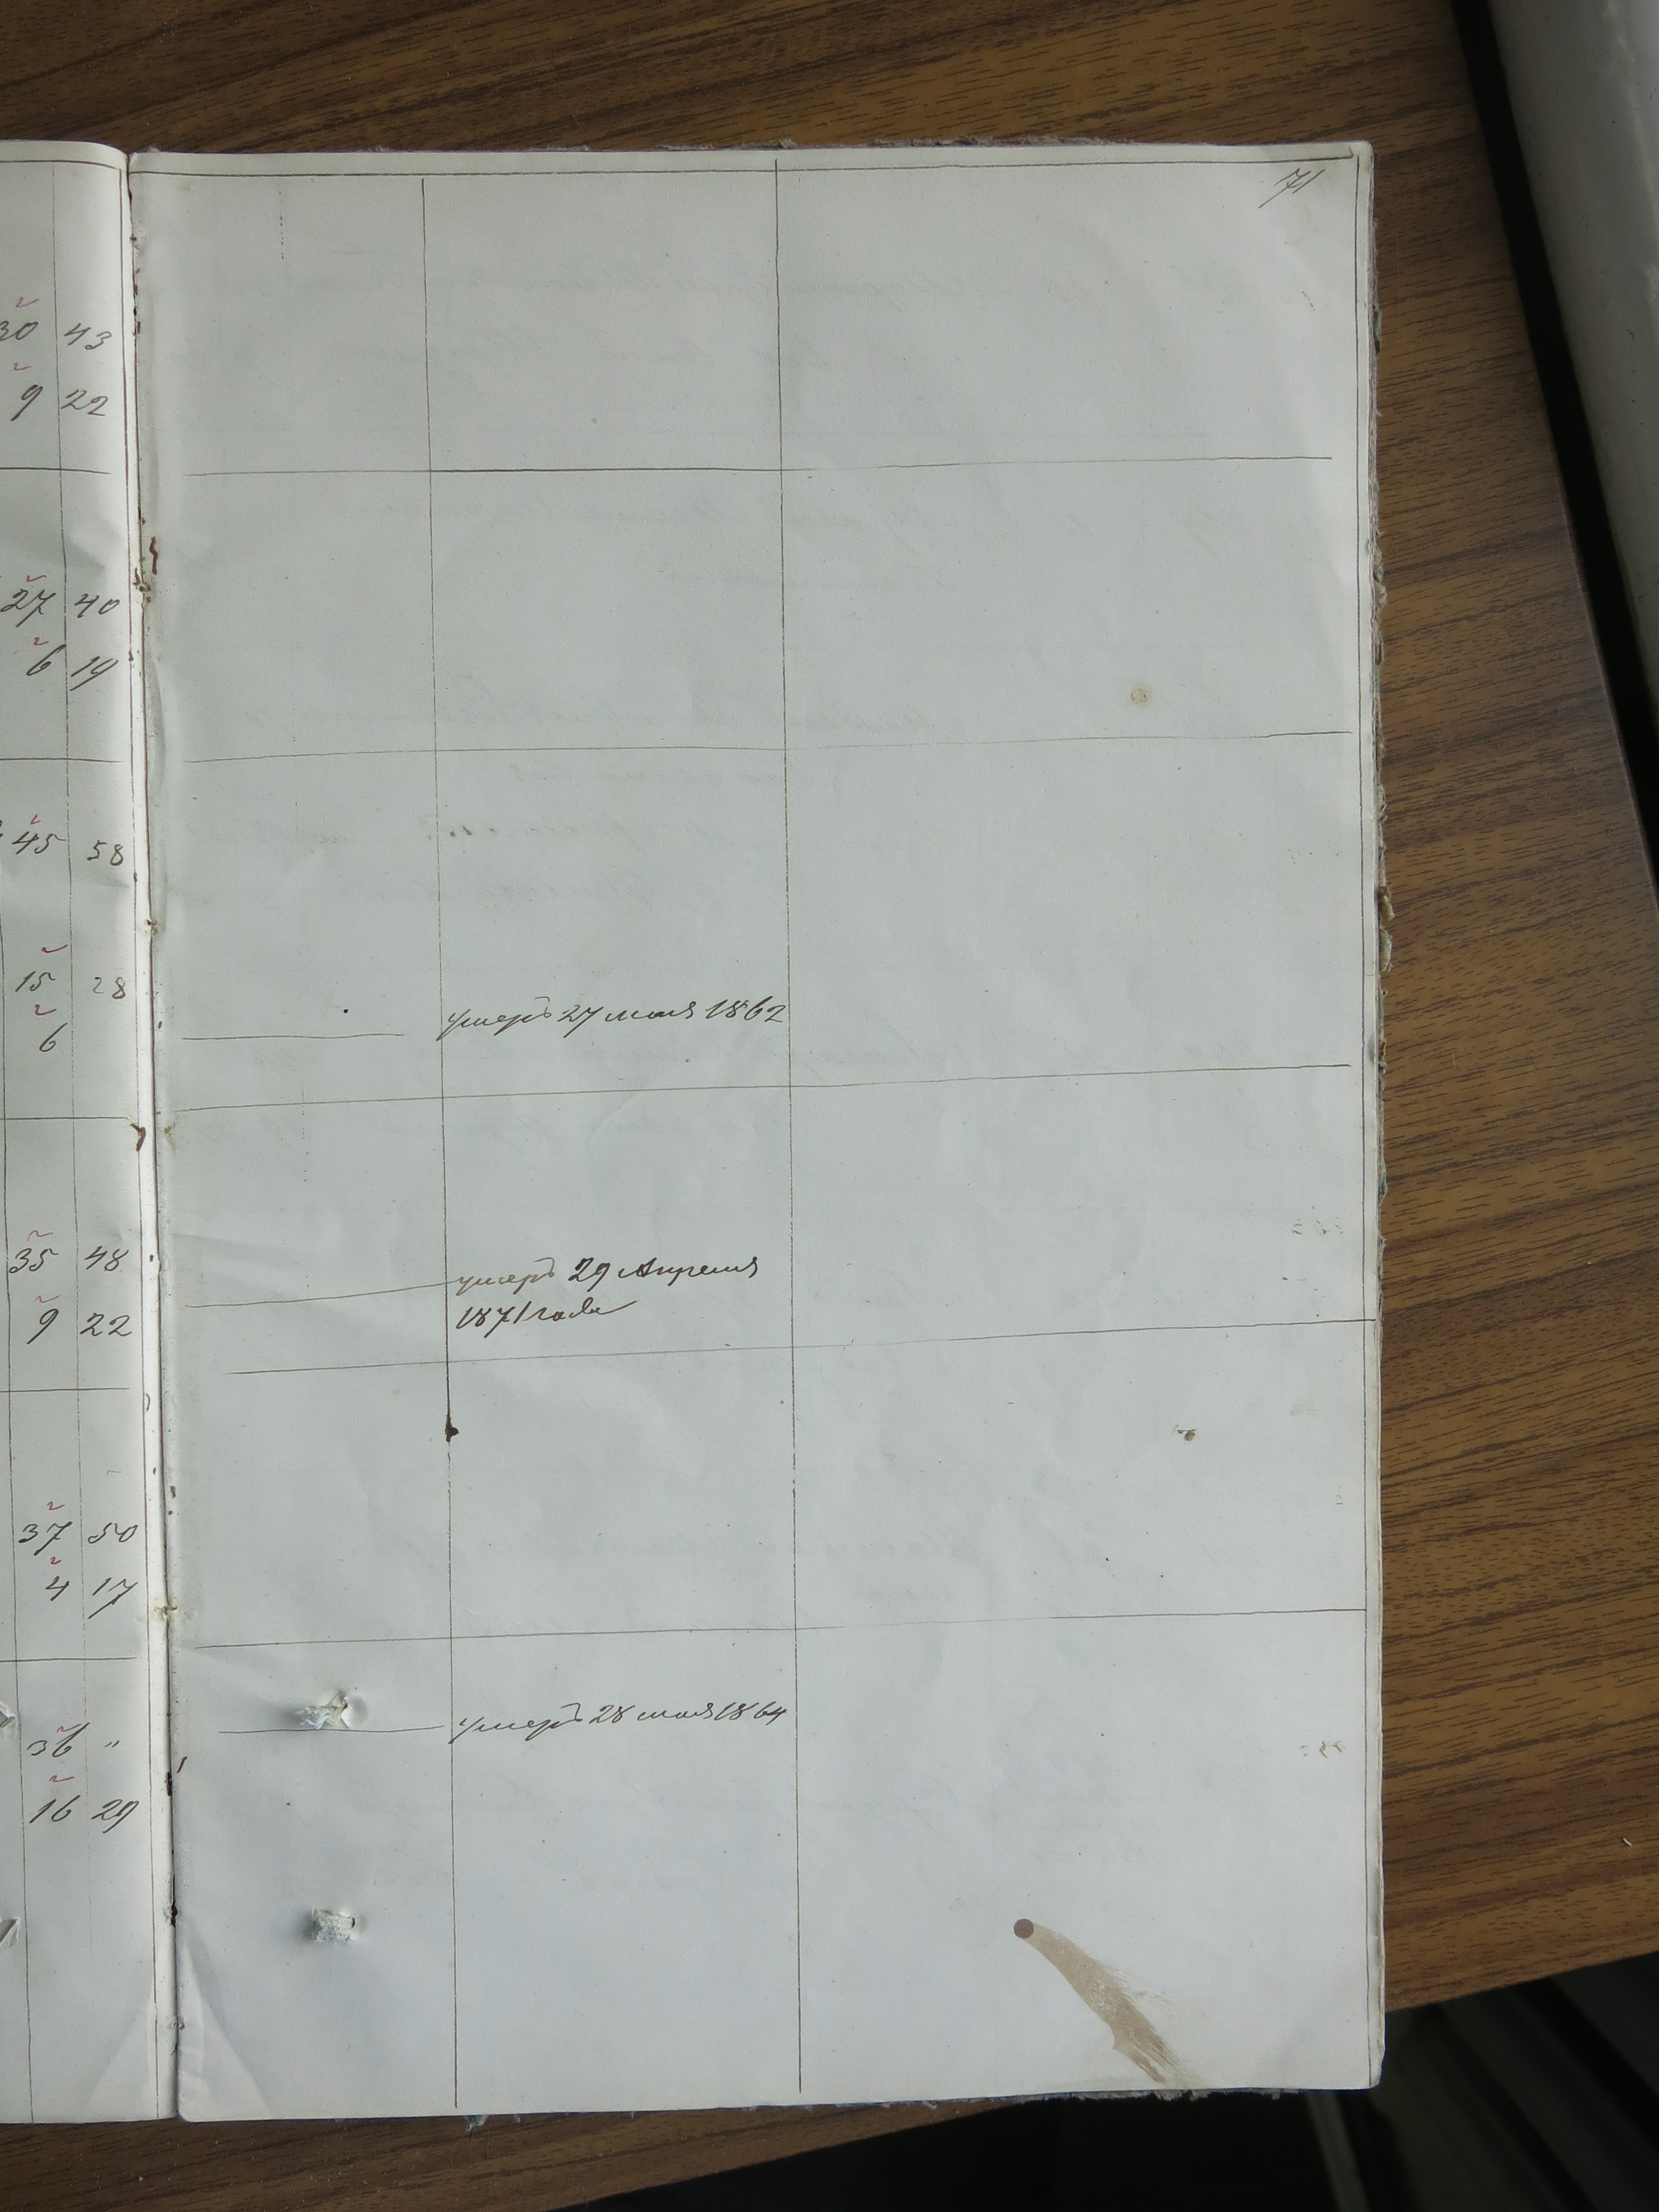 71
30 43
9 22
27 40
6 19
45 58
15 28
6
умеръ 27 мая 1862
35 48
умеръ 29 Апреля
1871 года
9 22
37 50
4 17
умеръ 28 мая 1864
36 "
16 29